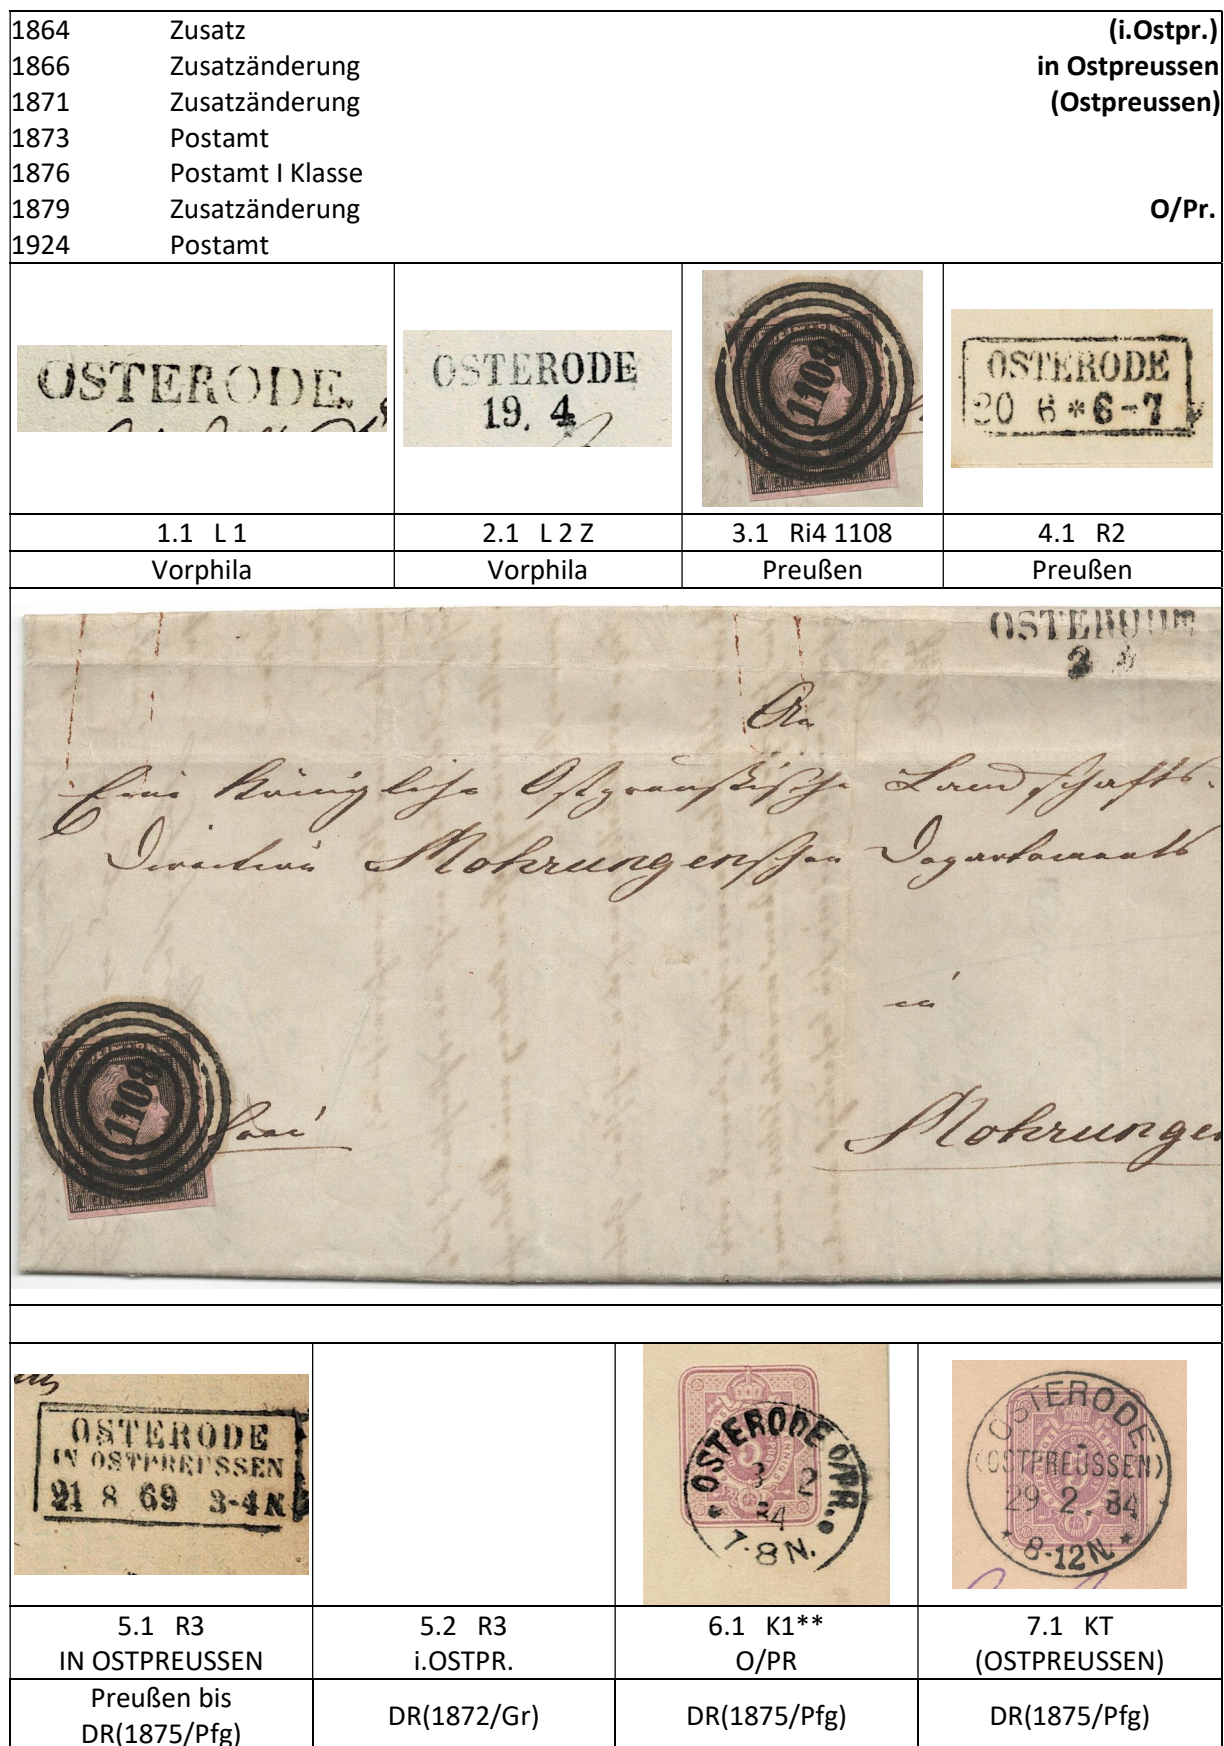 1864 Zusatz (i.Ostpr.)
1866 Zusatzänderung in Ostpreussen
1871 Zusatzänderung (Ostpreussen)
1873 Postamt
1876 Postamt I Klasse
1879 Zusatzänderung O/Pr.
1924 Postamt
OSTERODE
OSTERODE
19. 4
1108
OSTERODE
20 6 * 6-7
1.1 L 1 2.1 L 2 Z 3.1 Ri4 1108 4.1 R2
Vorphila Vorphila Preußen Preußen
OSTERODE
An
Eine Königliche Ostpreußische Landschafts-
Direction Mohrungenschen Departements
in
1108
Mohrungen
OSTERODE
IN OSTPREUSSEN
21 8 69 3-4 N
OSTERODE O/PR.
3 2
84
7-8 N.
OSTERODE
(OSTPREUSSEN)
29 2. 84
* 8-12 N. *
5.1 R3 5.2 R3 6.1 K1** 7.1 KT
IN OSTPREUSSEN i.OSTPR. O/PR (OSTPREUSSEN)
Preußen bis
DR(1875/Pfg) DR(1872/Gr) DR(1875/Pfg) DR(1875/Pfg)